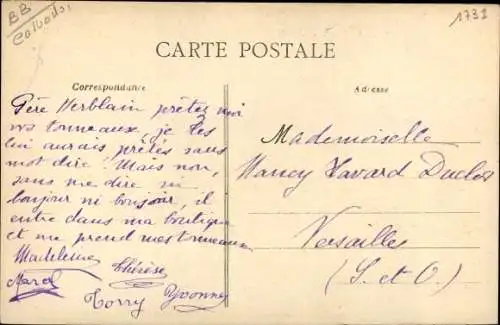 BB
Calvados
1731
CARTE POSTALE
Correspondance
Adresse
Père Verblain prêtez moi
vos tonneaux, je les
lui aurais prêtés sans
mot dire. Mais non,
sans me dire ni
bonjour ni bonsoir, il
entre dans ma boutique
et me prend mes tonneaux
Madeleine
Thérèse
Marcel
Torry Yvonne
Mademoiselle
Nancy Havard Duclos
Versailles
(S. et O.)